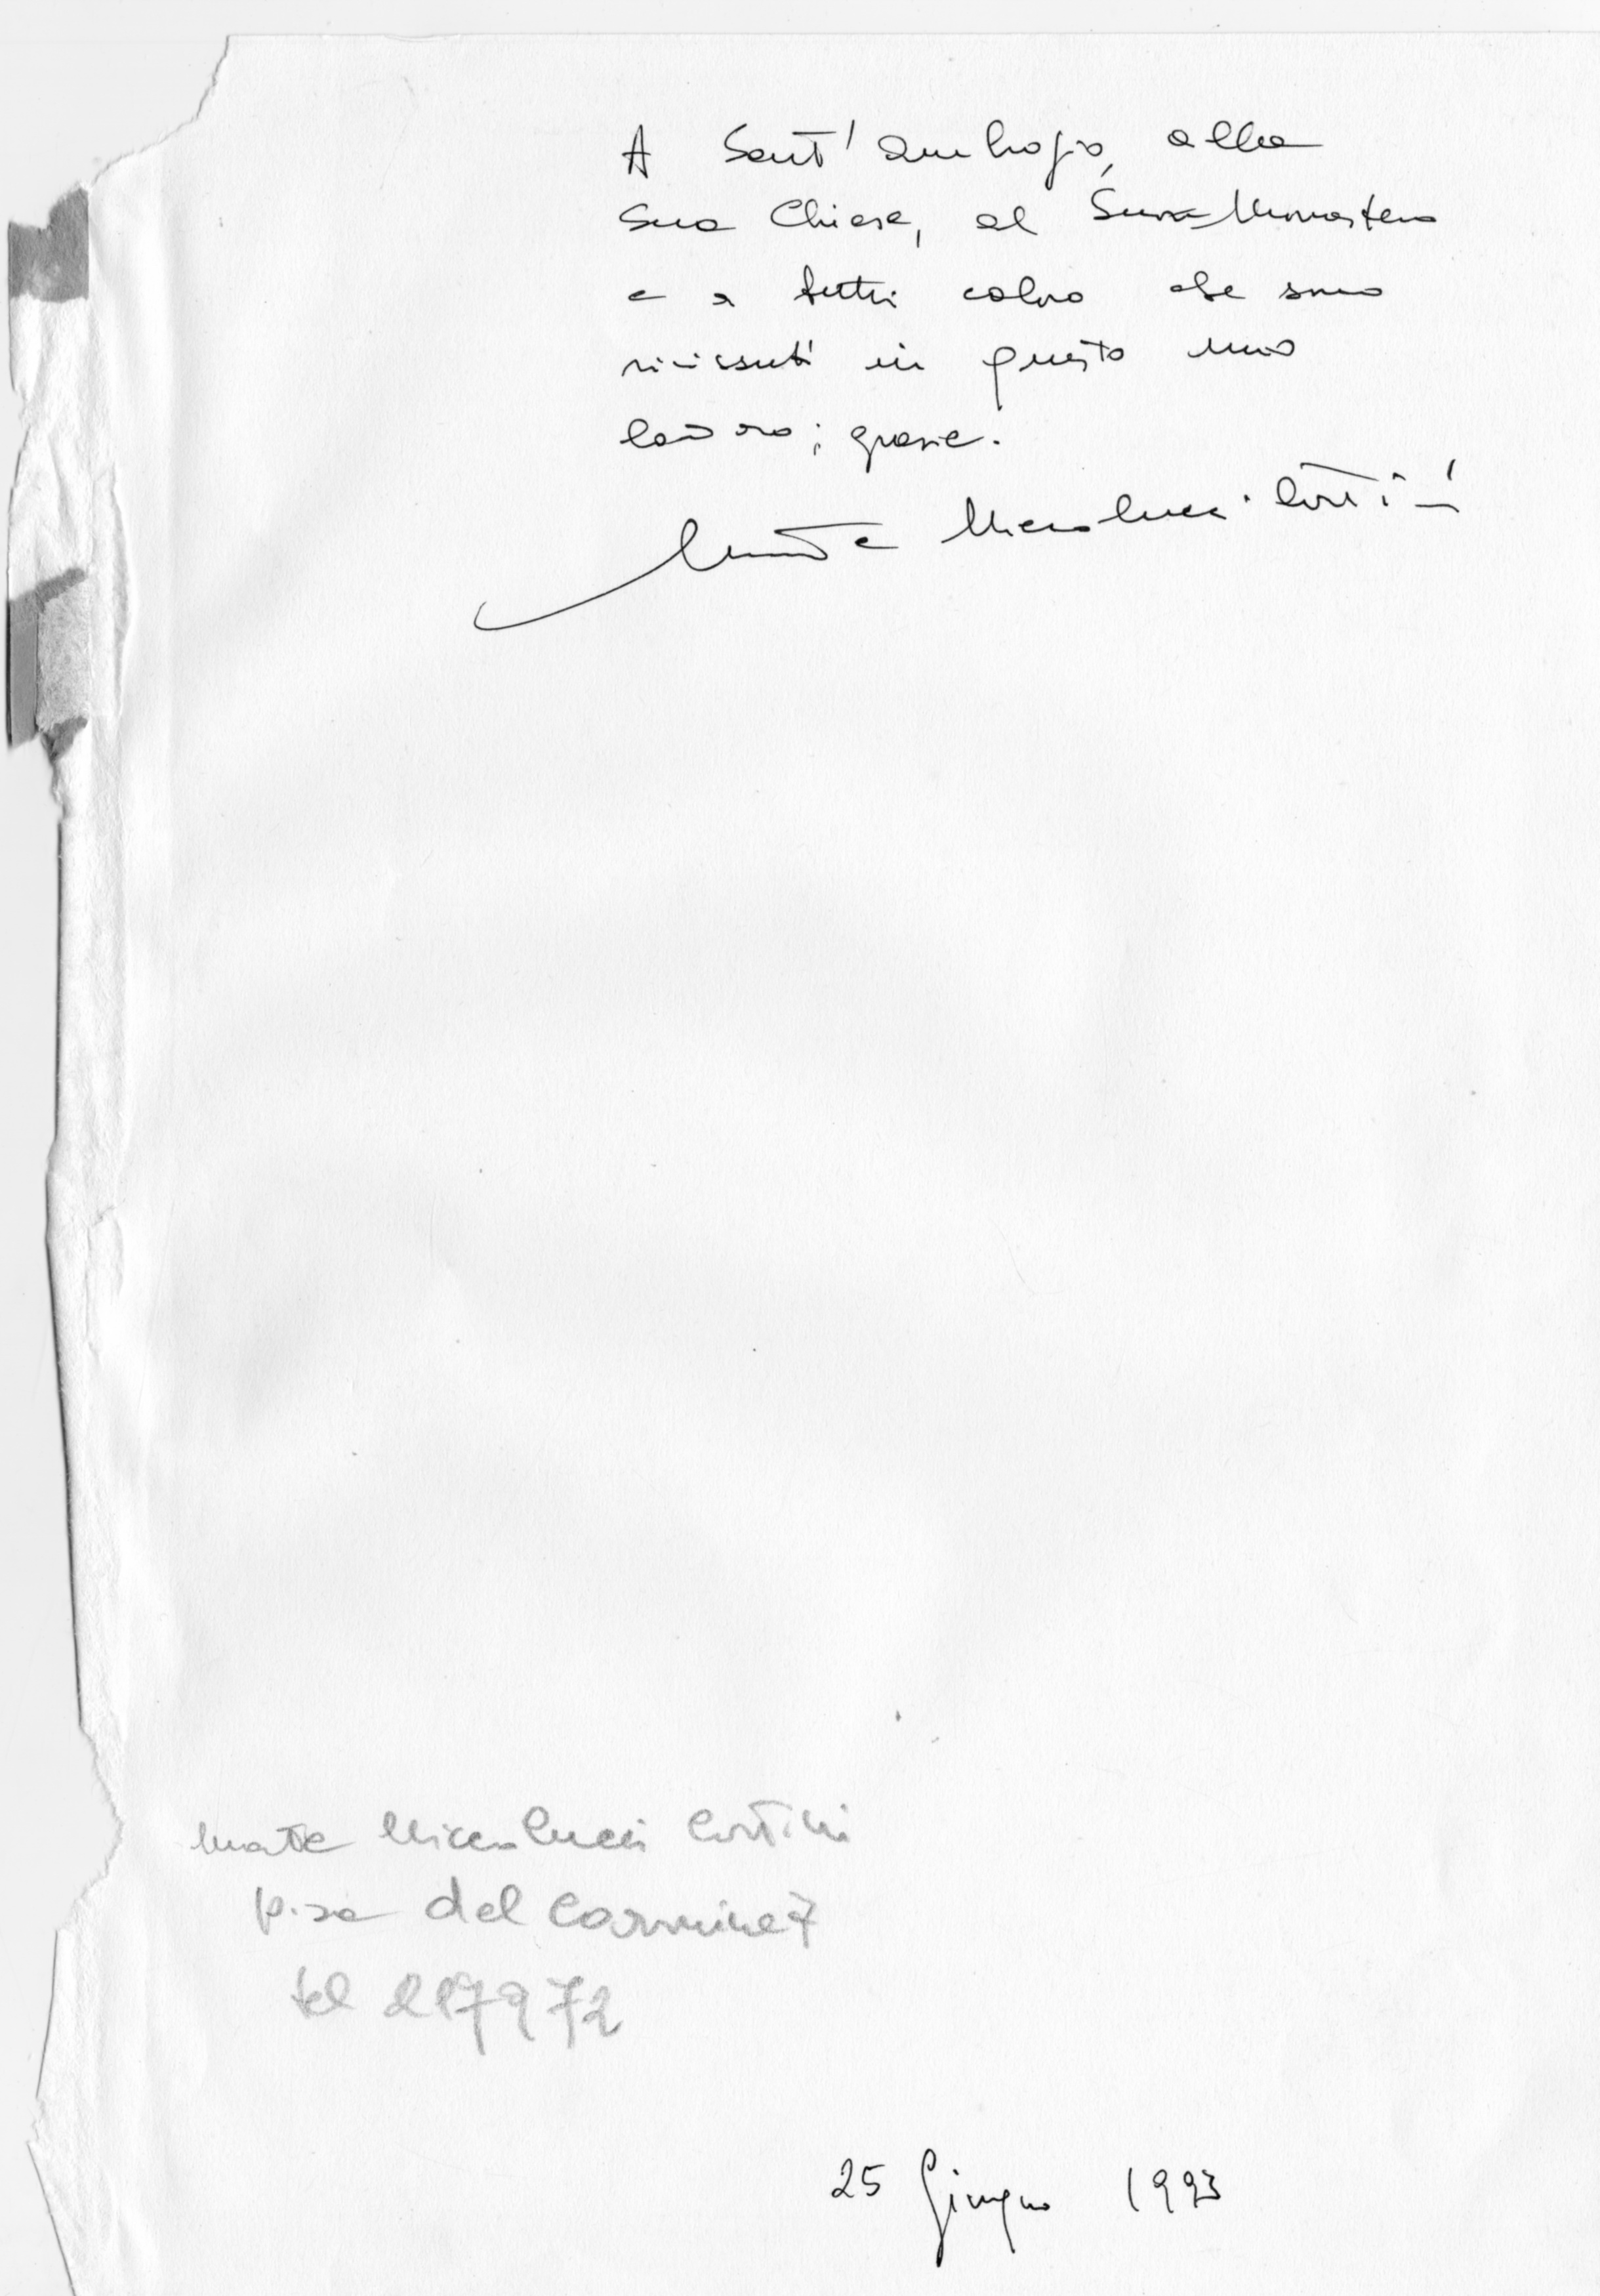 A Sant'Ambrogio, alla
Sua Chiesa, al Suo Monastero
e a tutti coloro che sono
rivissuti in questo mio
lavoro; grazie.
Micolucci Cortini
Micolucci Cortini
p.za del Carmine 7
tel 217972
25 Giugno 1993